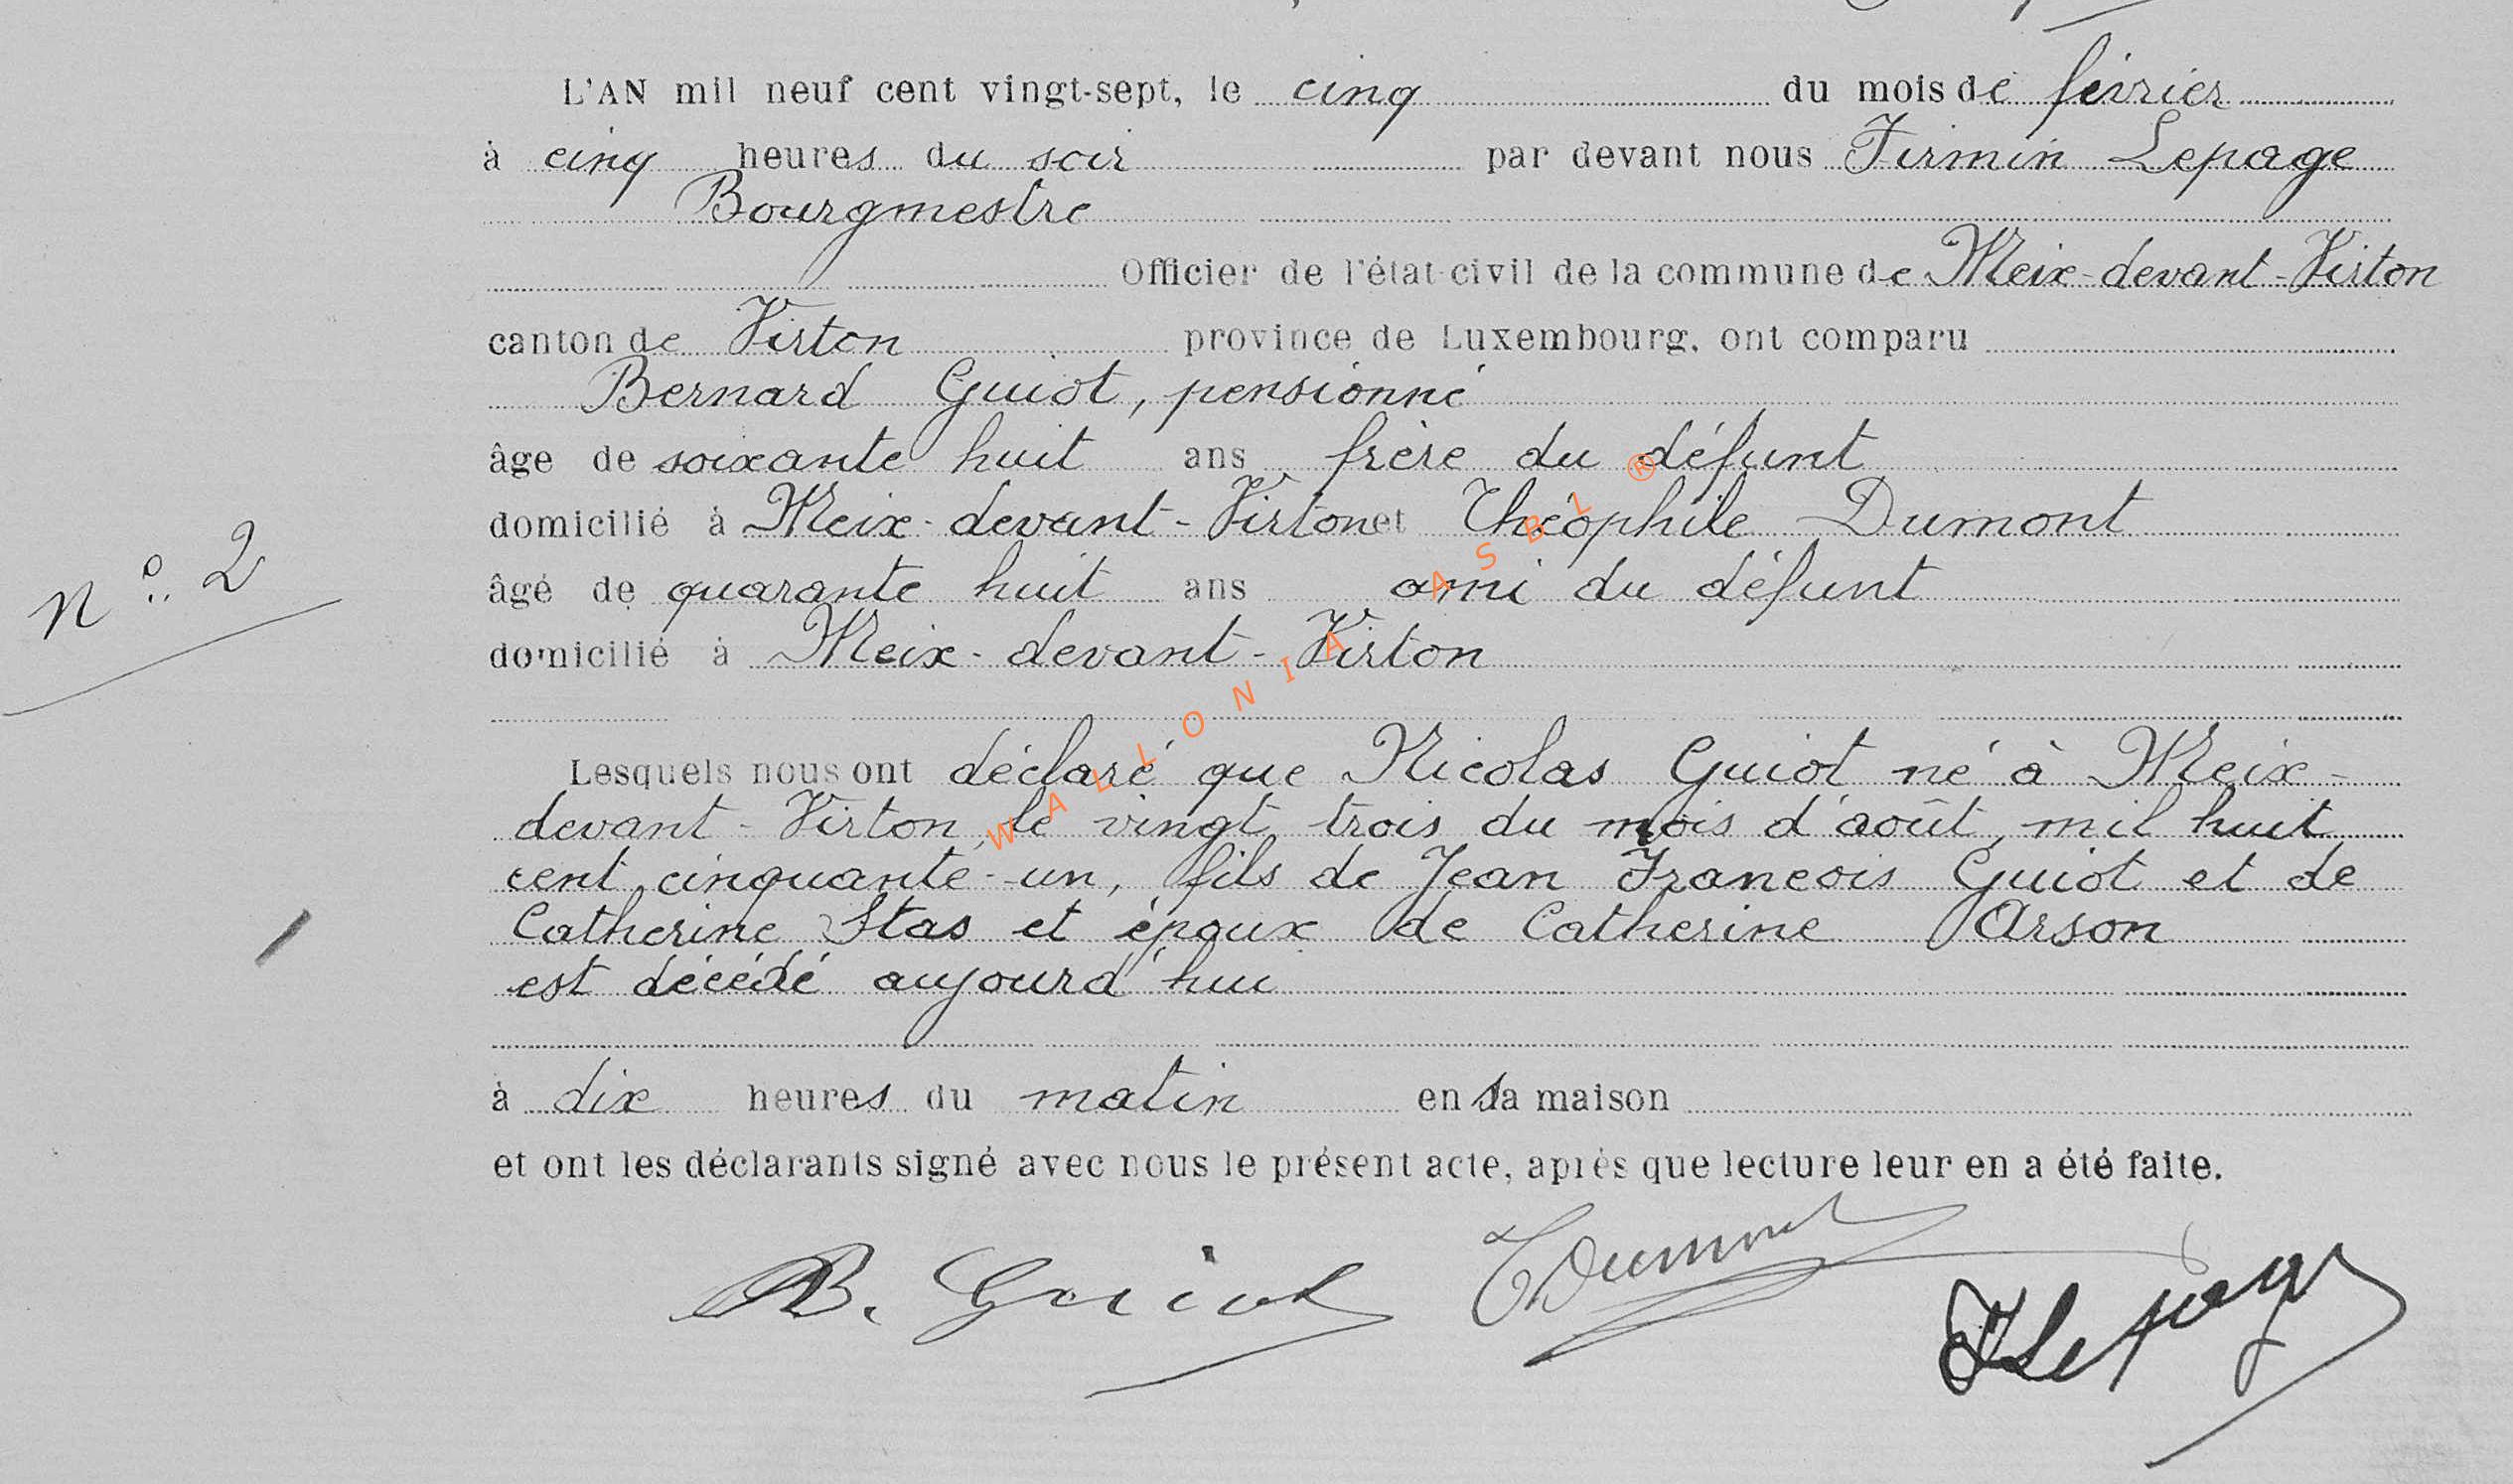 L'AN mil neuf cent vingt-sept, le cinq du mois de février
à cinq heures du soir par devant nous Firmin Lepage
Bourgmestre
Officier de l'état-civil de la commune de Meix-devant-Virton
canton de Virton province de Luxembourg, ont comparu
Bernard Guiot, pensionné
âge de soixante huit ans frère du défunt
domicilié à Meix-devant-Virton et Théophile Dumont
N° 2
âgé de quarante huit ans ami du défunt
domicilié à Meix-devant-Virton
WALLONIA ASBL ®
Lesquels nous ont déclaré que Nicolas Guiot né à Meix-
devant-Virton, le vingt trois du mois d'août, mil huit
cent cinquante-un, fils de Jean Francois Guiot et de
Catherine Stas et époux de Catherine Arson
est décédé aujourd'hui
à dix heures du matin en sa maison
et ont les déclarants signé avec nous le présent acte, après que lecture leur en a été faite.
B. Guiot TDumont FLepage